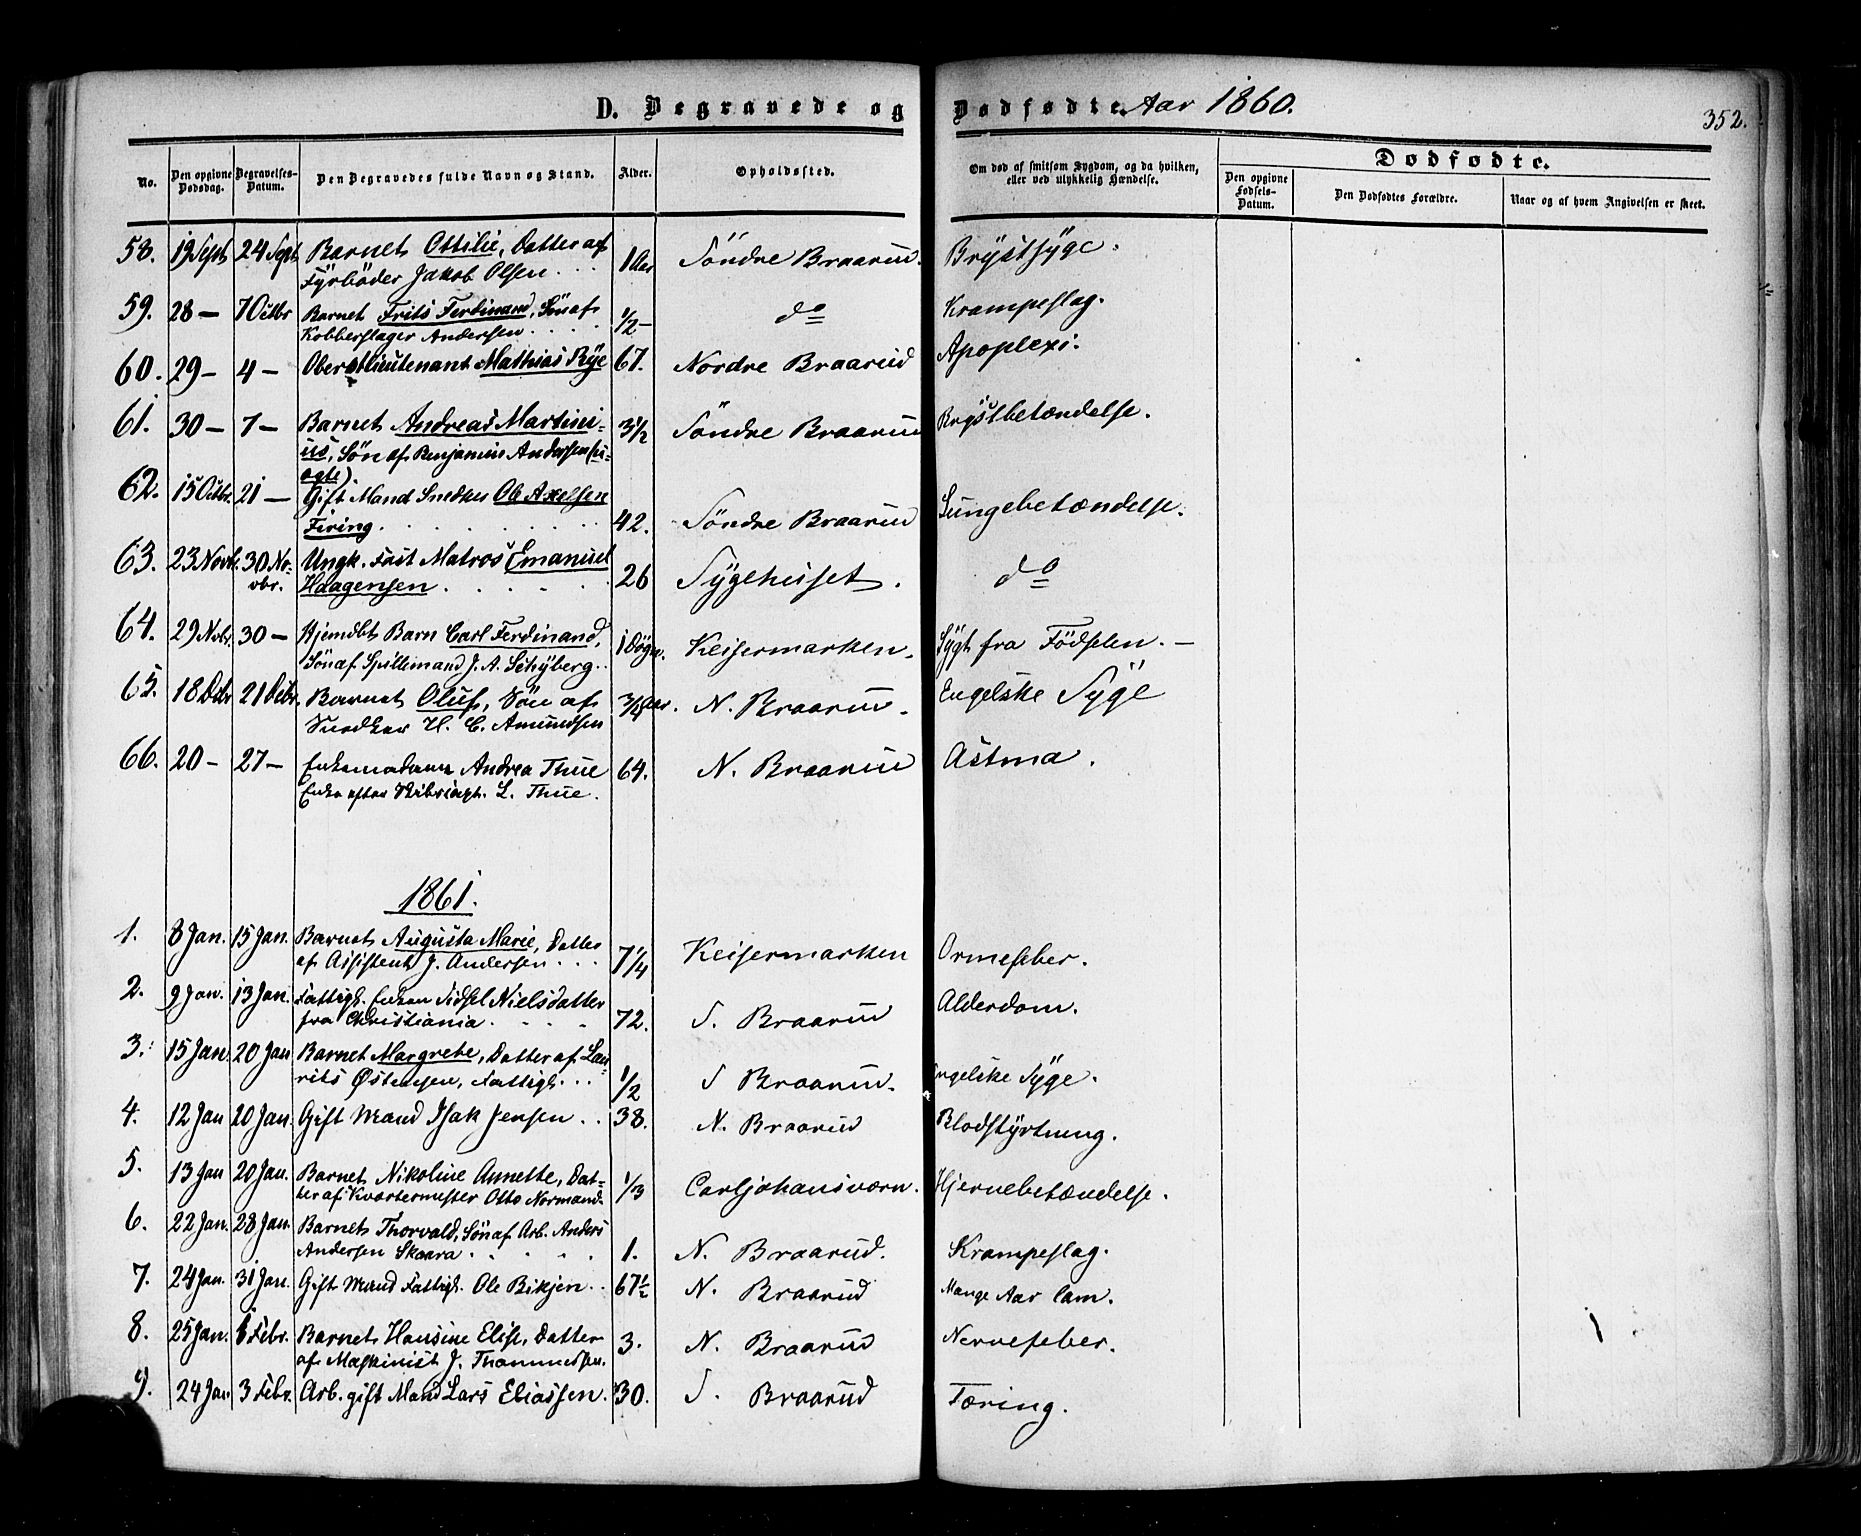 D. Begravede og Dodfodte. Aar 1860.
352.
No.
Den opgivne Dodsdag.
Begravelses-Datum.
Den Begravedes fulde Navn og Stand.
Alder.
Opholdssted.
Om dod af smitsom Sygdom, og da hvilken, eller ved ulykkelig Hændelse.
Dodfodte.
Den opgivne Fodsels-Datum.
Den Dodfodtes Forældre.
Naar og af hvem Angivelsen er skeet.
58. 19 Sept 24 Sept Barnet Ottilie, Datter af 1 Aar Söndre Braarud. Brystsyge.
Fyrböder Jakob Olsen . . .
59. 28 — 7 Octbr Barnet Frits Ferdinand, Sön af 1/2 — do Krampeslag.
Kobberslager Andersen . . . .
60. 29 — 4 — Oberstlieutenant Mathias Rye 67. Nordre Braarud Apoplexi.
61. 30 — 7 — Barnet Andreas Martini- 3 1/2 Söndre Braarud Brystbetændelse.
us, Søn af Benjamin Andersen (u-
ægte).
62. 15 Octbr. 21 — Gift Mand Snedker Ole Axelsen 42. Söndre Braarud Lungebetændelse.
Firing . . . . . .
63. 23 Novb. 30 No- Ungk. Fast Matros Emanuel 26 Sygehuset. do
vbr. Haagensen . . . .
64. 29 Nvbr. 30 — Hjemdbt Barn Carl Ferdinand, 1 Døgn. Keisermarken. Sygt fra Födselen. —
Sön af Spillemand J. A. Schyberg . .
65. 18 Debr 21 Debr. Barnet Oluf, Sön af 3/4 Aar. N. Braarud. Engelske Syge
Snedker H. C. Amundsen
66. 20 — 27 — Enkemadame Andrea Thue 64. N. Braarud Astma.
Enke efter Skibsingt. L. Thue.
1861.
1. 8 Jan. 15 Jan. Barnet Augusta Marie, Datter 7 1/4 Keisermarken Ormefeber.
af Assistent J. Andersen . . .
2. 9 Jan. 13 Jan. Fattigl. Enken Sidsel Nielsdatter 72. S. Braarud Alderdom.
fra Christiania . . . .
3. 15 Jan. 20 Jan Barnet Margrete, Datter af Lau- 1/2 S Braarud. Engelske Syge.
rits Østensen, Fattigl. . .
4. 12 Jan 20 Jan. Gift Mand Isak Jensen . . 38. N. Braarud Blodstyrtning.
5. 13 Jan 20 Jan. Barnet Nikoline Annette, Dat- 1/3 Carljohansværn. Hjernebetændelse.
ter af Kvartermester Otto Normand.
6. 22 Jan. 28 Jan. Barnet Thorvald, Sön af Arb. Anders 1. N. Braarud. Krampeslag.
Andersen Skaara . . . .
7. 24 Jan. 31 Jan. Gift Mand Fattigl. Ole Bikjen . . 67 1/2 N. Braarud Mange Aar lam.
8. 25 Jan. 6 Febr. Barnet Hansine Elise, Datter 3. N. Braarud Nervefeber.
af Maskinist J. Thommessen.
9. 24 Jan. 3 Febr. Arb. gift Mand Lars Eliassen. 30. S. Braarud Tæring.